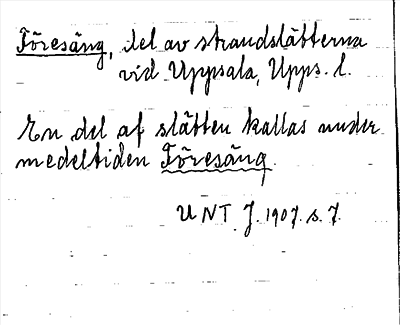 Föresäng, del av strandslätterna
vid Uppsala, Upps. l.
En del af slätten kallas under
medeltiden Föresäng.
UNT J. 1907. s. 7.